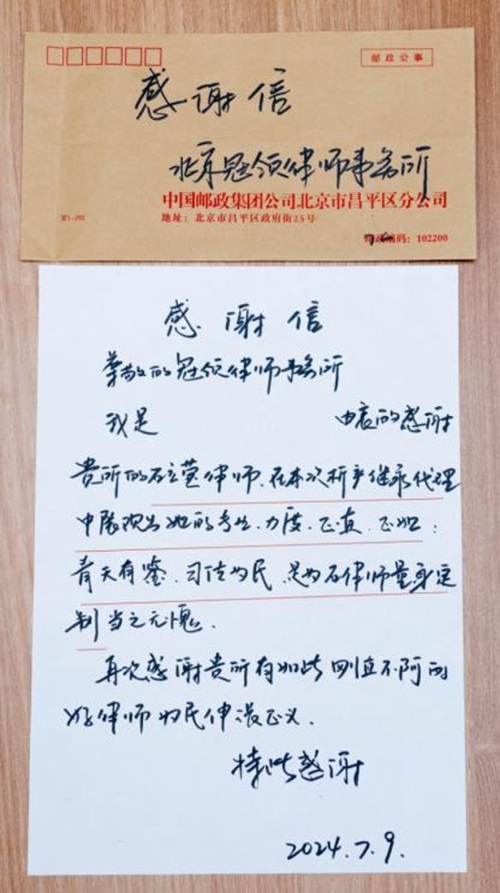 邮政公事
感谢信
北京冠领律师事务所
中国邮政集团公司北京市昌平区分公司
地址：北京市昌平区政府街25号
邮政编码：102200
感谢信
尊敬的冠领律师事务所
我是 由衷的感谢
贵所的石立莹律师，在本次析产继承代理
中展现出她的专业、力度、正直、正如：
青天有鉴，司法为民，是为石律师量身定
制当之无愧。
再次感谢贵所有如此刚直不阿的
好律师为民伸张正义。
特此感谢
2024.7.9.